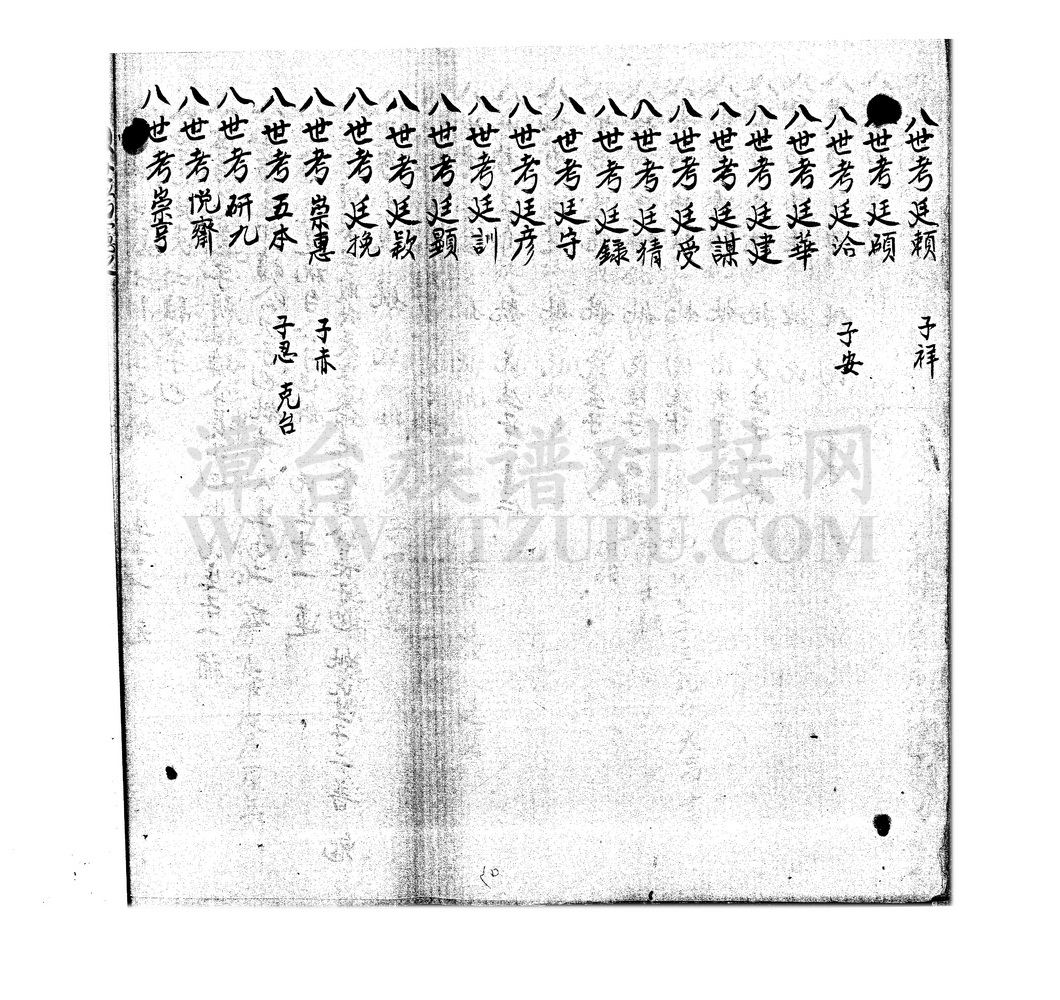 八世考廷賴 子祥
八世考廷碩
八世考廷洽 子安
八世考廷華
八世考廷建
八世考廷謀
八世考廷受
八世考廷猜
八世考廷錄
八世考廷守
八世考廷彥
八世考廷訓
八世考廷顯
八世考廷欵
八世考廷挽
八世考崇惠 子赤
八世考五本 子忍 克台
八世考研九
八世考悅齋
八世考崇亨
漳台族谱对接网
WWW.ZTZUPU.COM